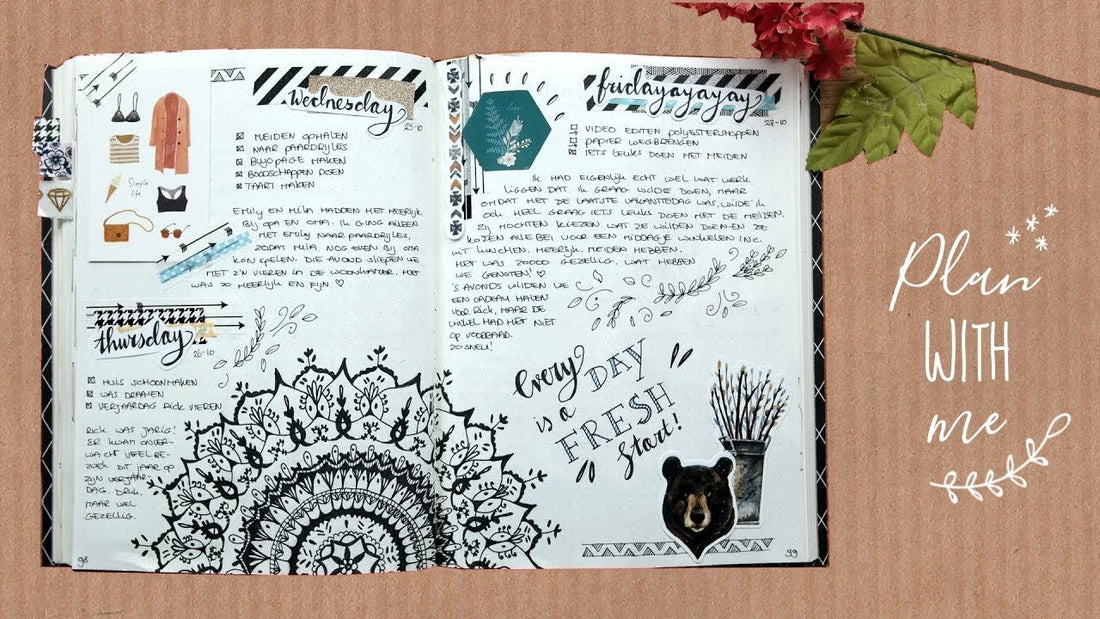 Wednesday
25-10
MEIDEN OPHALEN
NAAR PAARDRIJLES
BUJOPAGE MAKEN
BOODSCHAPPEN DOEN
TAART MAKEN
Simple
life
EMILY EN MILA HADDEN HET HEERLIJK
BIJ OPA EN OMA. IK GING ALLEEN
MET EMILY NAAR PAARDRIJLES,
ZODAT MILA NOG EVEN BIJ OMA
KON SPELEN. DIE AVOND SLIEPEN WE
MET Z'N VIEREN IN DE WOONKAMER. HET
WAS ZO HEERLIJK EN FIJN. ♡
thursday
26-10
HUIS SCHOONMAKEN
WAS DRAAIEN
VERJAARDAG RICK VIEREN
RICK WAS JARIG!
ER KWAM ONVER-
WACHT VEEL BE-
ZOEK DIT JAAR OP
ZIJN VERJAAR-
DAG. DRUK,
MAAR WEL
GEZELLIG.
98
love
fridayayayayay
27-10
VIDEO EDITEN POLYESTERSHOPPEN
PAPIER WEGBRENGEN
IETS LEUKS DOEN MET MEIDEN
IK HAD EIGENLIJK ECHT WEL WAT WERK
LIGGEN DAT IK GRAAG WILDE DOEN, MAAR
OMDAT HET DE LAATSTE VAKANTIEDAG WAS, WILDE IK
OOK HEEL GRAAG IETS LEUKS DOEN MET DE MEIDEN.
ZIJ MOCHTEN KIEZEN WAT ZE WILDEN DOEN EN ZE
KOZEN ALLEBEI VOOR EEN MIDDAGJE WINKELEN INC.
UIT LUNCHEN. HEERLIJK, MEIDEN HEBBEN.
HET WAS ZOOOO GEZELLIG. WAT HEBBEN
WE GENOTEN! ♡
'S AVONDS WILDEN WE
EEN CADEAU HALEN
VOOR RICK, MAAR DE
WINKEL HAD HET NIET
OP VOORRAAD.
ZO SNEU!
Every DAY
is a
FRESH
Start!
99
Plan
WITH
me